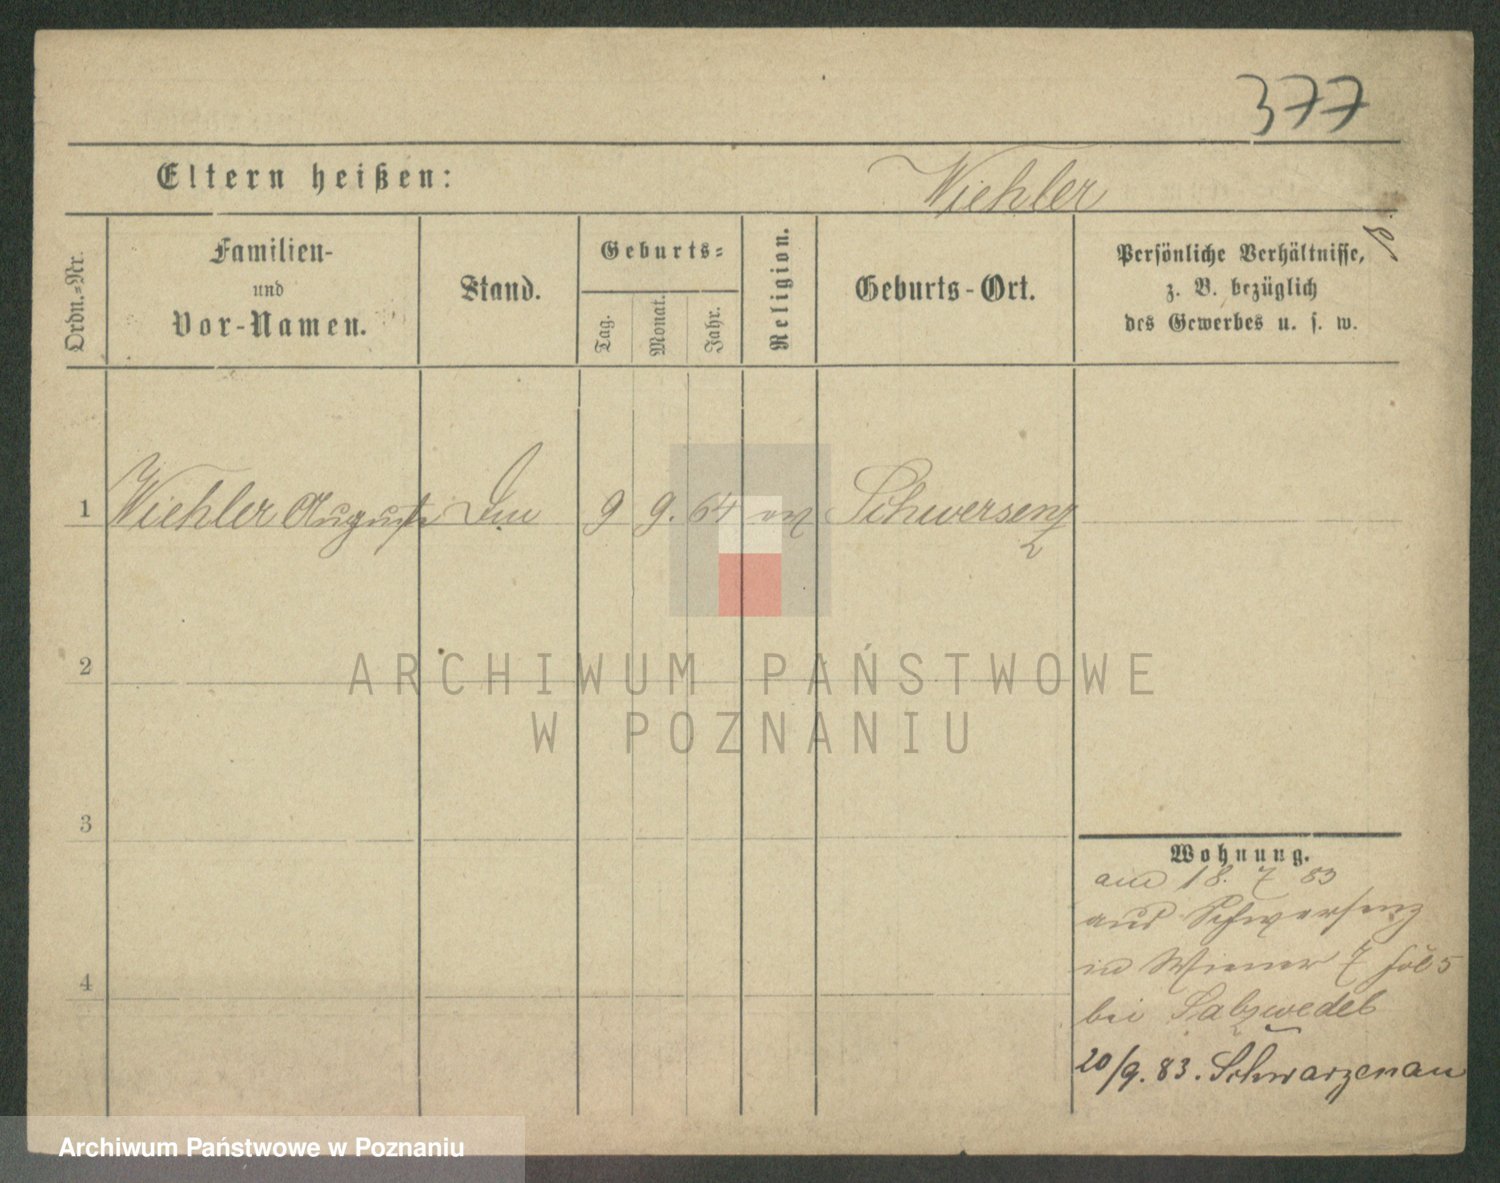 377
Eltern heißen: Wiehler
Ordn.-Nr.
Familien-
und
Vor-Namen.
Stand.
Geburts-
Tag.
Monat.
Jahr.
Religion.
Geburts-Ort.
Persönliche Verhältnisse,
z. B. bezüglich
des Gewerbes u. s. w.
1 Wiehler Auguste 9 9. 64 Schwersenz
2
3
4
ARCHIWUM PAŃSTWOWE
W POZNANIU
Wohnung.
18. 7 83
aus Schwersenz
Wiener 7
bei Salzwedel
20/9. 83. Schwarzenau
Archiwum Państwowe w Poznaniu